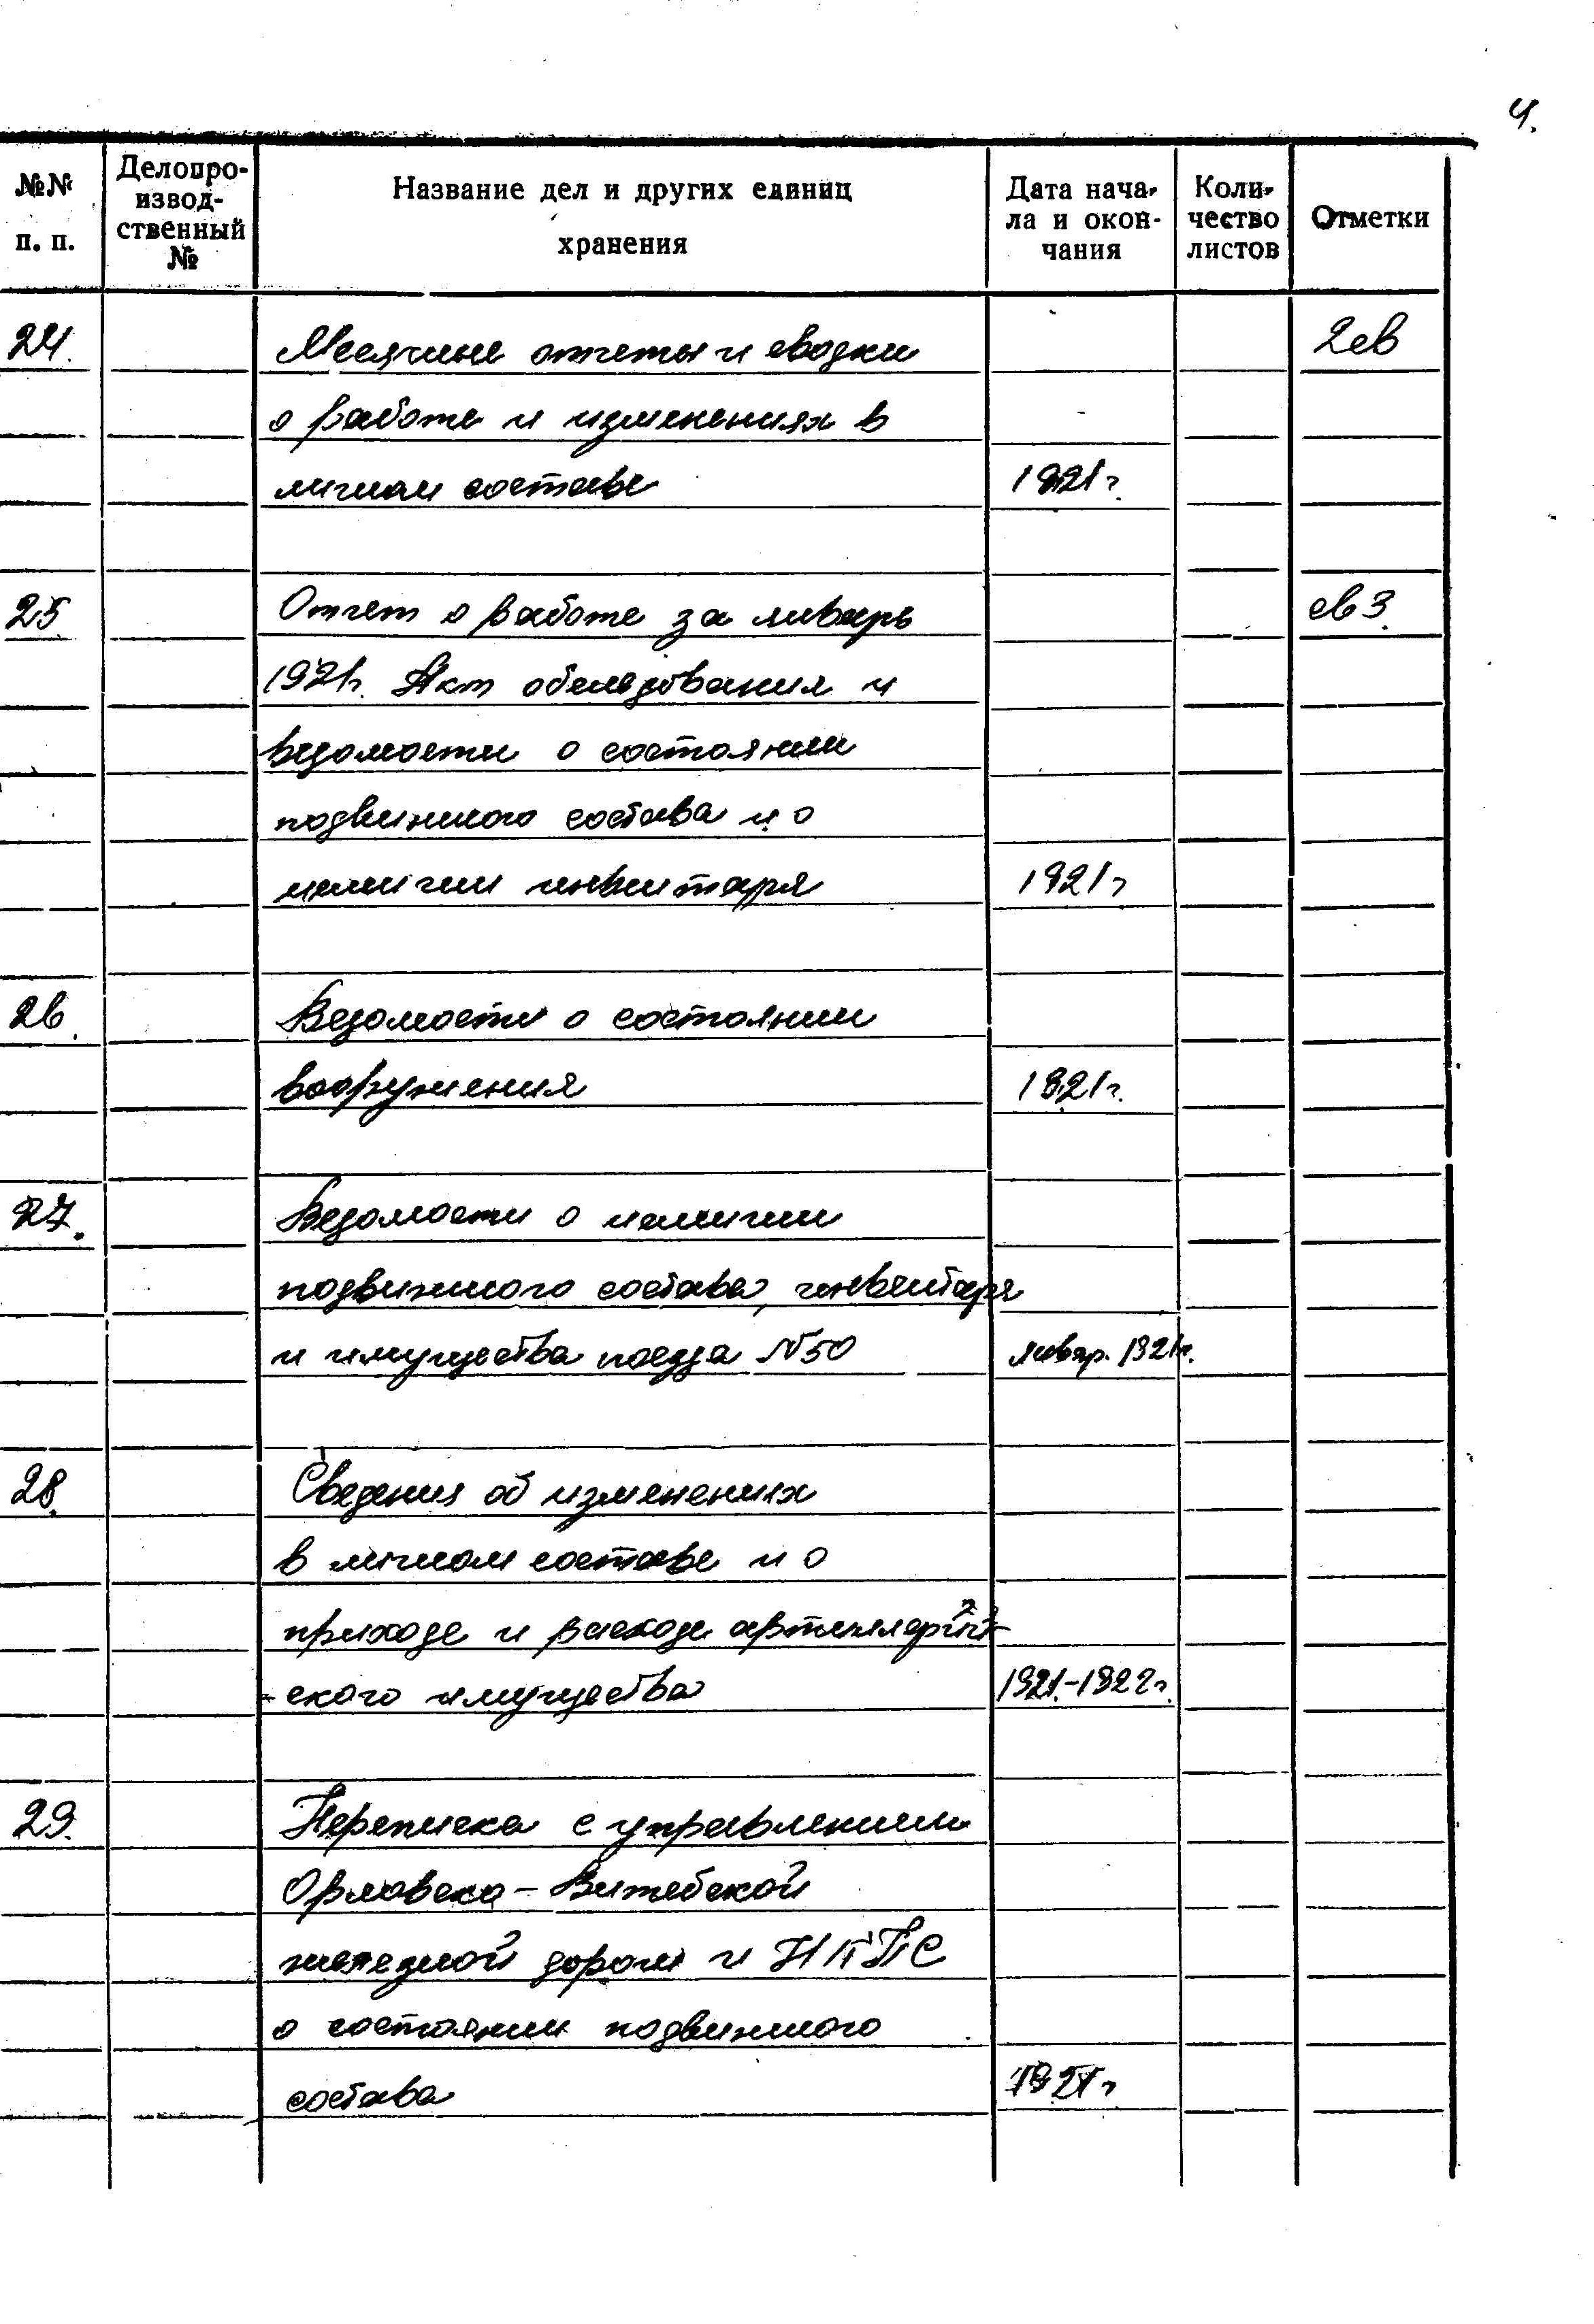 4.
№№ п. п.
Делопро-
извод-
ственный
№
Название дел и других единиц
хранения
Дата нача-
ла и окон-
чания
Коли-
чество
листов
Отметки
24. Месячные отчеты и сводки 2св
о работе и изменениях в
личном составе 1921 г.
25 Отчет о работе за январь св 3.
1921г. Акт обследования и
ведомости о состоянии
подвижного состава и о
наличии инвентаря 1921 г
26. Ведомости о состоянии
вооружения 1921 г.
27. Ведомости о наличии
подвижного состава, инвентаря
и имущества поезда №50 январ. 1921 г.
28. Сведения об изменениях
в личном составе и о
приходе и расходе артиллерий-
-ского имущества 1921.-1922 г.
29. Переписка с управлением
Орловско-Витебской
железной дороги и НКПС
о состоянии подвижного
состава 1921 г